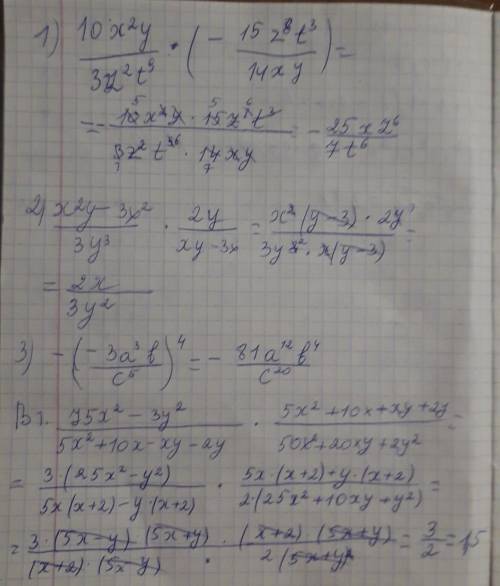 1) \frac{10x^2y}{3z^2t^9} \cdot \left(-\frac{15z^8t^3}{14xy}\right) =
= -\frac{10x^2y \cdot 15z^8t^3}{3z^2t^9 \cdot 14xy} = -\frac{25xz^6}{7t^6}
2) \frac{x^2y - 3x^2}{3y^3} \cdot \frac{2y}{xy - 3x} = \frac{x^2(y-3) \cdot 2y}{3y^3 \cdot x(y-3)} =
= \frac{2x}{3y^2}
3) -\left(\frac{-3a^3b}{c^5}\right)^4 = -\frac{81a^{12}b^4}{c^{20}}
В1. \frac{75x^2 - 3y^2}{5x^2 + 10x - xy - 2y} \cdot \frac{5x^2 + 10x + xy + 2y}{50x^2 + 20xy + 2y^2} =
= \frac{3 \cdot (25x^2 - y^2)}{5x(x+2) - y \cdot (x+2)} \cdot \frac{5x \cdot (x+2) + y \cdot (x+2)}{2(25x^2 + 10xy + y^2)} =
= \frac{3 \cdot (5x-y) \cdot (5x+y) \cdot (x+2) \cdot (5x+y)}{(x+2) \cdot (5x-y) \cdot 2(5x+y)^2} = \frac{3}{2} = 1,5